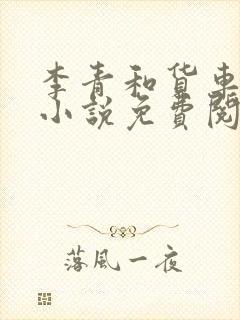 李青和货車
小說免費閱
落風一夜